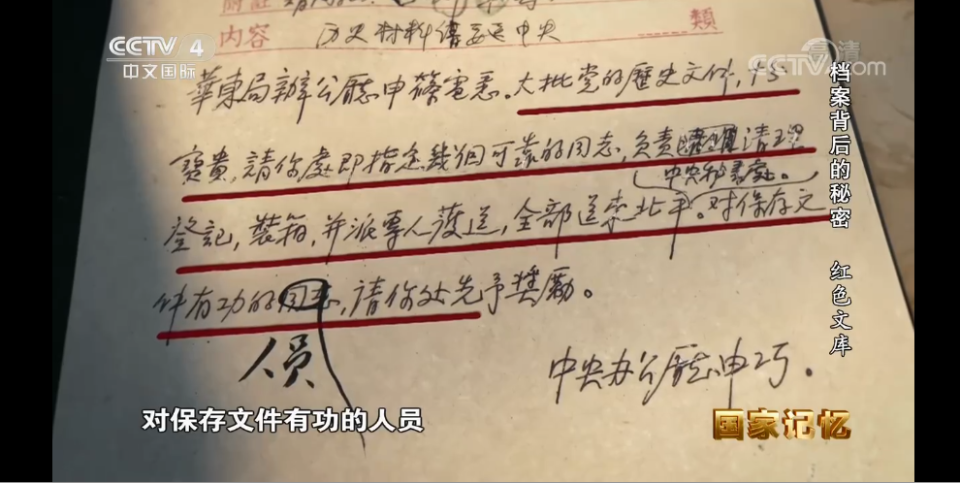 附註
内容 历史材料請送中央 類
CCTV 4
中文国际
高清
CCTV.com
档案背后的秘密 红色文库
華東局辦公廳申篠電悉。大批党的歷史文件,十分
寶貴,請你處即指定幾個可靠的同志,負責清理
中央秘書處。
登記,裝箱,并派專人護送,全部送來北平。对保存文
件有功的同志,請你处先予獎勵。
人员
中央办公廳申巧。
对保存文件有功的人员
国家记忆